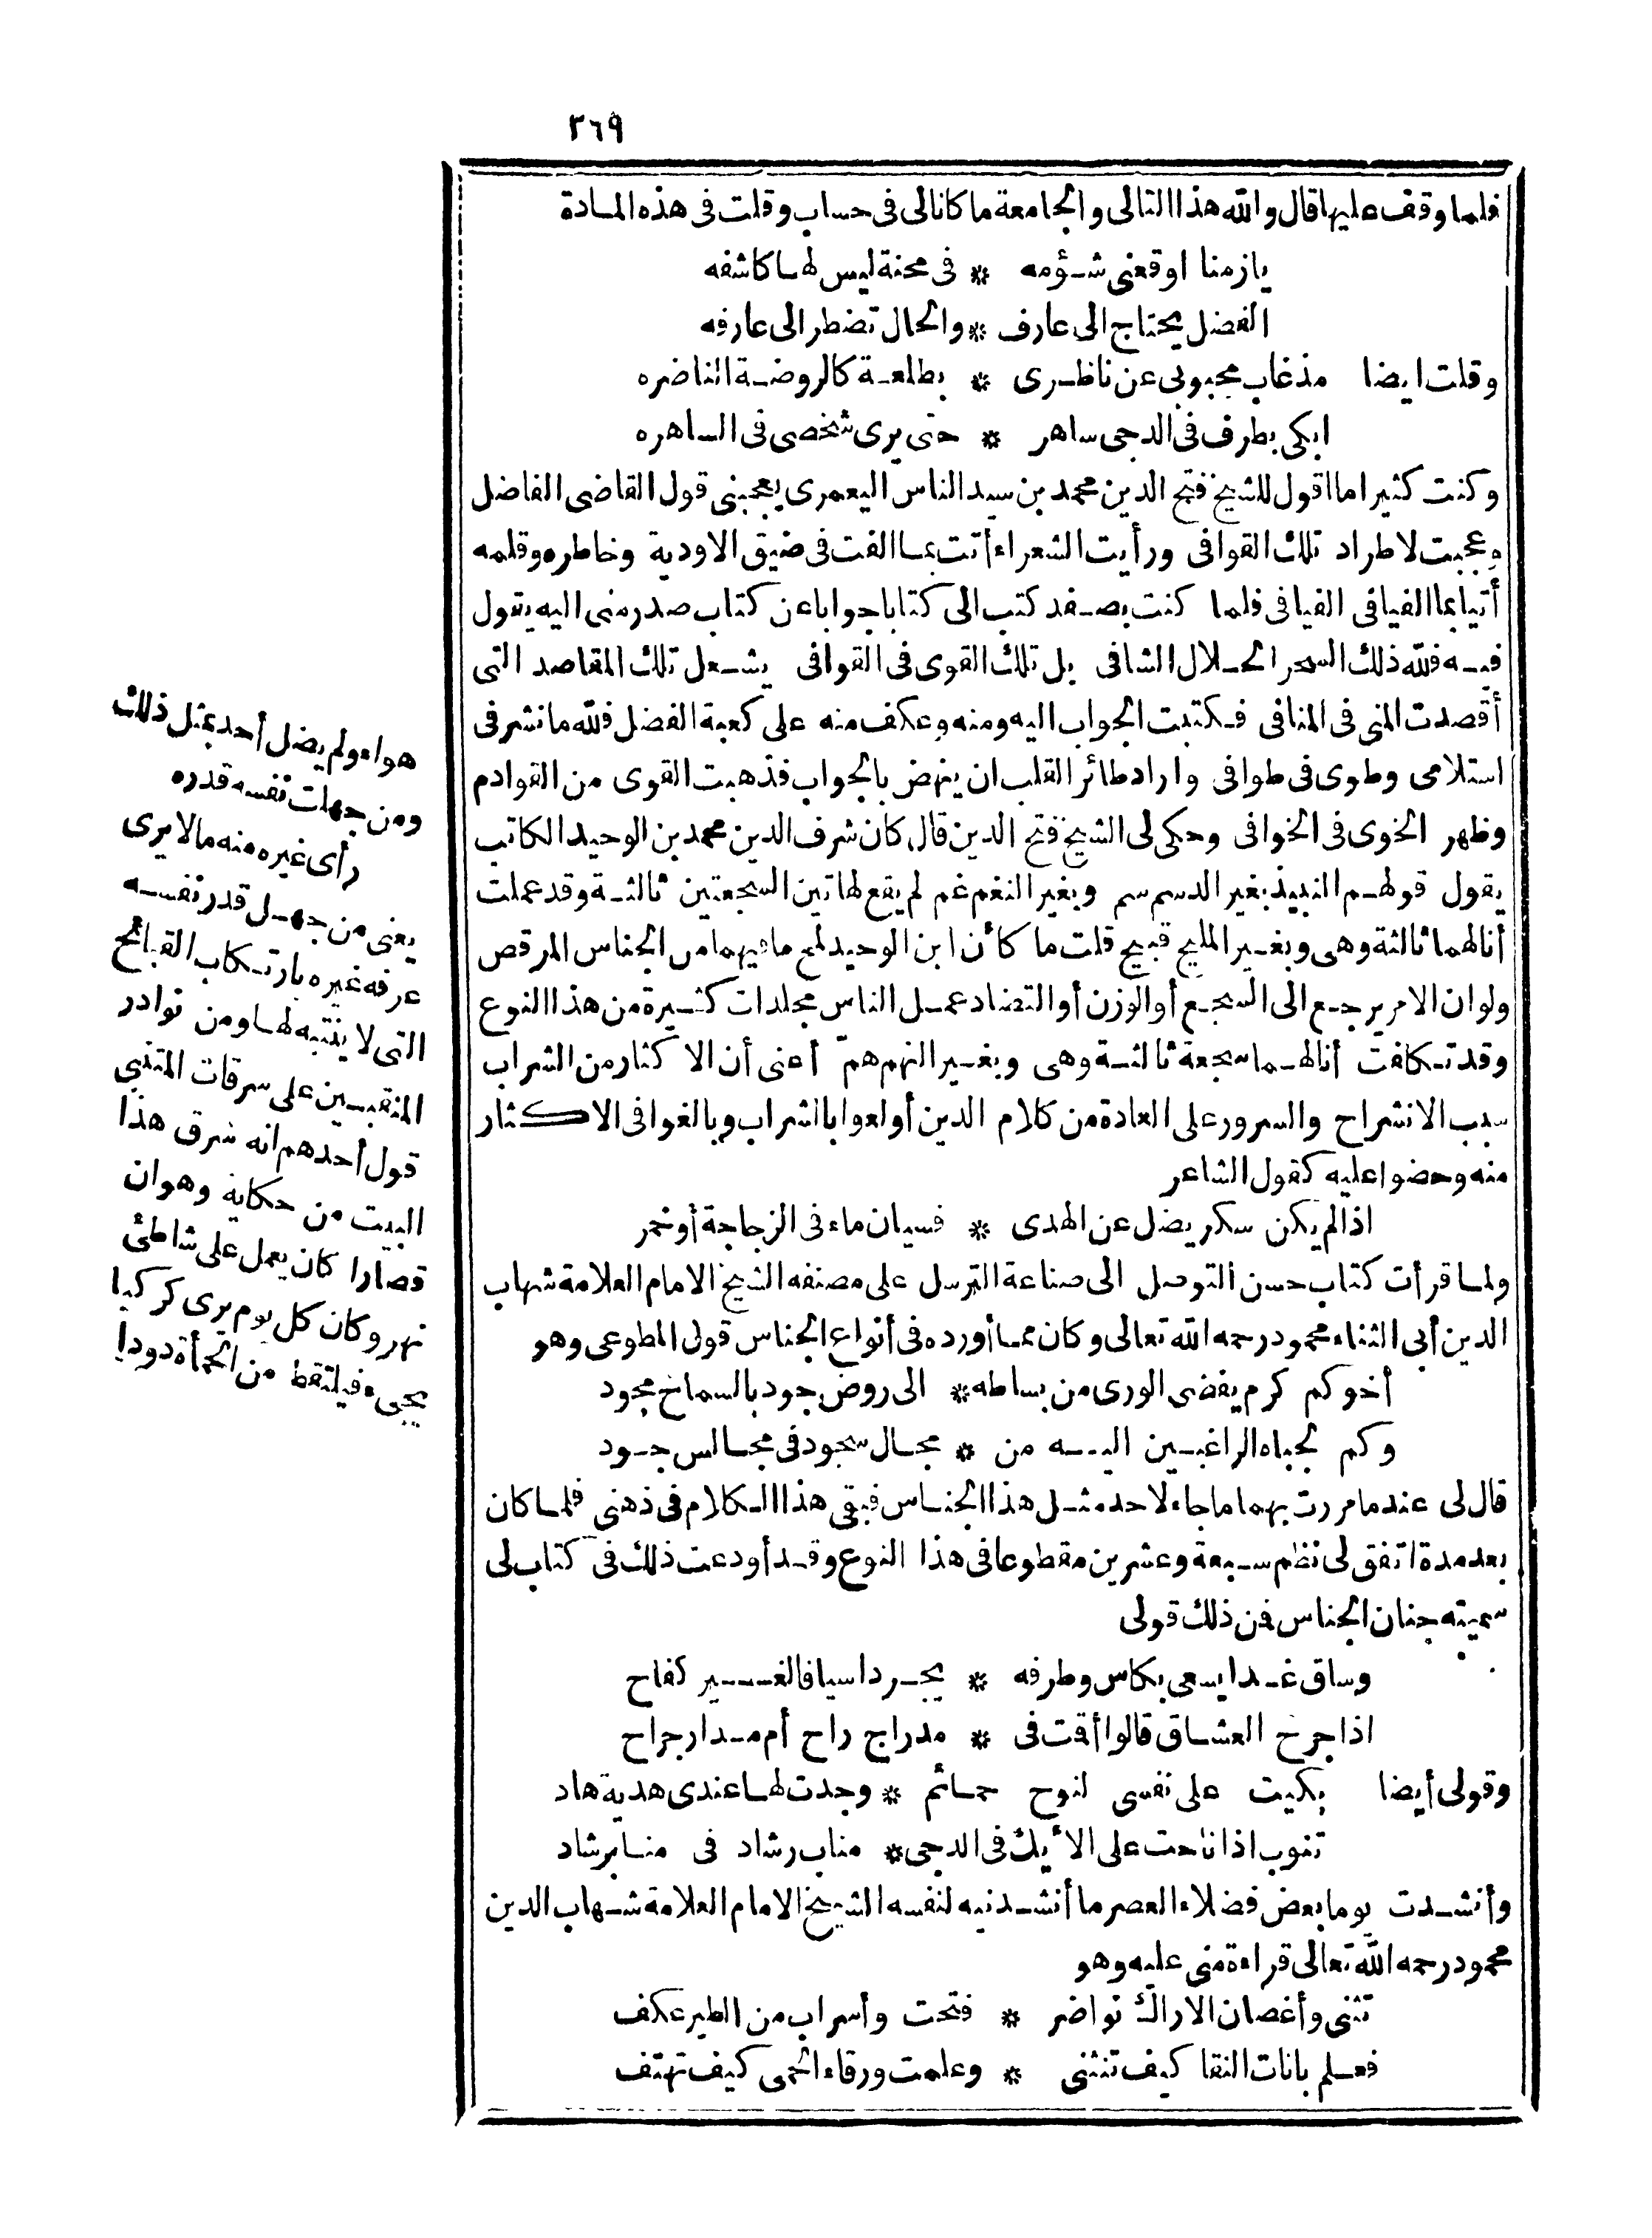 ٣٦٩
فلما وقف عليها قال والله هذا التالى والجامعة ما كانا لى فى حساب وقلت فى هذه المادة
يا زمنا اوقعنى شؤمه * فى محنة ليس لها كاشفه
الفضل يحتاج الى عارف * والحال تضطر الى عارفه
وقلت ايضا مذ غاب محبوبى عن ناظرى * بطلعة كالروضة الناضره
ابكى بطرف فى الدجى ساهر * حتى يرى شخصى فى الساهره
وكنت كثيرا ما اقول للشيخ فتح الدين محمد بن سيد الناس اليعمرى يعجبنى قول القاضى الفاضل
وعجبت لاطراد تلك القوافى ورأيت الشعراء أتت بما الفت فى ضيق الاودية وخاطره وقلمه
أتيا بما الفيا فى الفيافى فلما كنت بصفد كتب الى كتابا جوابا عن كتاب صدر منى اليه يقول
فيه فلله ذلك السحر الحلال الشافى بل تلك القوى فى القوافى يشعل تلك المقاصد التى
أقصدت المنى فى المنافى فكتبت الجواب اليه ومنه وعكف منه على كعبة الفضل فلله ما نشر فى
استلامى وطوى فى طوافى واراد طائر القلب ان ينهض بالجواب فذهبت القوى من القوادم
وظهر الخوى فى الخوافى وحكى لى الشيخ فتح الدين قال كان شرف الدين محمد بن الوحيد الكاتب
يقول قولهم النبيذ بغير الدسم سم وبغير النغم غم لم يقع لهاتين السجعتين ثالثة وقد عملت
أنا لهما ثالثة وهى وبغير المليح قبيح قلت ما كأن ابن الوحيد لمح ما فيهما من الجناس المرقص
ولو ان الامر يرجع الى السجع أو الوزن أو التضاد عمل الناس مجلدات كثيرة من هذا النوع
وقد تكلفت أنا لهما سجعة ثالثة وهى وبغير النهم همّ أعنى أن الاكثار من الشراب
سبب الانشراح والسرور على العادة من كلام الذين أولعوا بالشراب وبالغوا فى الاكثار
منه وحضوا عليه كقول الشاعر
اذا لم يكن سكر يضل عن الهدى * فسيان ماء فى الزجاجة أو خمر
ولما قرأت كتاب حسن التوصل الى صناعة الترسل على مصنفه الشيخ الامام العلامة شهاب
الدين أبى الثناء محمود رحمه الله تعالى وكان مما أورده فى أنواع الجناس قول المطوعى وهو
أخو كم كرم يفضى الورى من بساطه * الى روض جود بالسماح مجود
وكم لجباه الراغبين اليه من * مجال سجود فى مجالس جود
قال لى عندما مررت بهما ما جاء لاحد مثل هذا الجناس فبقى هذا الكلام فى ذهنى فلما كان
بعد مدة اتفق لى نظم سبعة وعشرين مقطوعا فى هذا النوع وقد أودعت ذلك فى كتاب لى
سميته جنان الجناس فمن ذلك قولى
وساق غدا يسعى بكاس وطرفه * يجرد اسيافا لغير كفاح
اذا جرح العشاق قالوا أقمت فى * مدراج راح أم مدار جراح
وقولى أيضا بكيت على نفسى لنوح حمائم * وجدت لها عندى هدية هاد
تنوب اذا ناحت على الأيك فى الدجى * مناب رشاد فى منابر شاد
وأنشدت يوما بعض فضلاء العصر ما أنشدنيه لنفسه الشيخ الامام العلامة شهاب الدين
محمود رحمه الله تعالى قراءة منى عليه وهو
تثنى وأغصان الاراك نواضر * فتحت وأسراب من الطير عكف
فعلم بانات النقا كيف تنثنى * وعلمت ورقاء الحمى كيف تهتف
هواه ولم يضل أحد بمثل ذلك
ومن جهلت نفسه قدره
رأى غيره منه ما لا يرى
يعنى من جهل قدر نفسه
عرفه غيره بارتكاب القبائح
التى لا ينتبه لها ومن نوادر
المنقبين على سرقات المتنبى
قول أحدهم انه سرق هذا
البيت من حكاية وهو ان
قصارا كان يعمل على شاطئ
نهر وكان كل يوم يرى كركيا
يجىء فيلتقط من الحمأة دودا